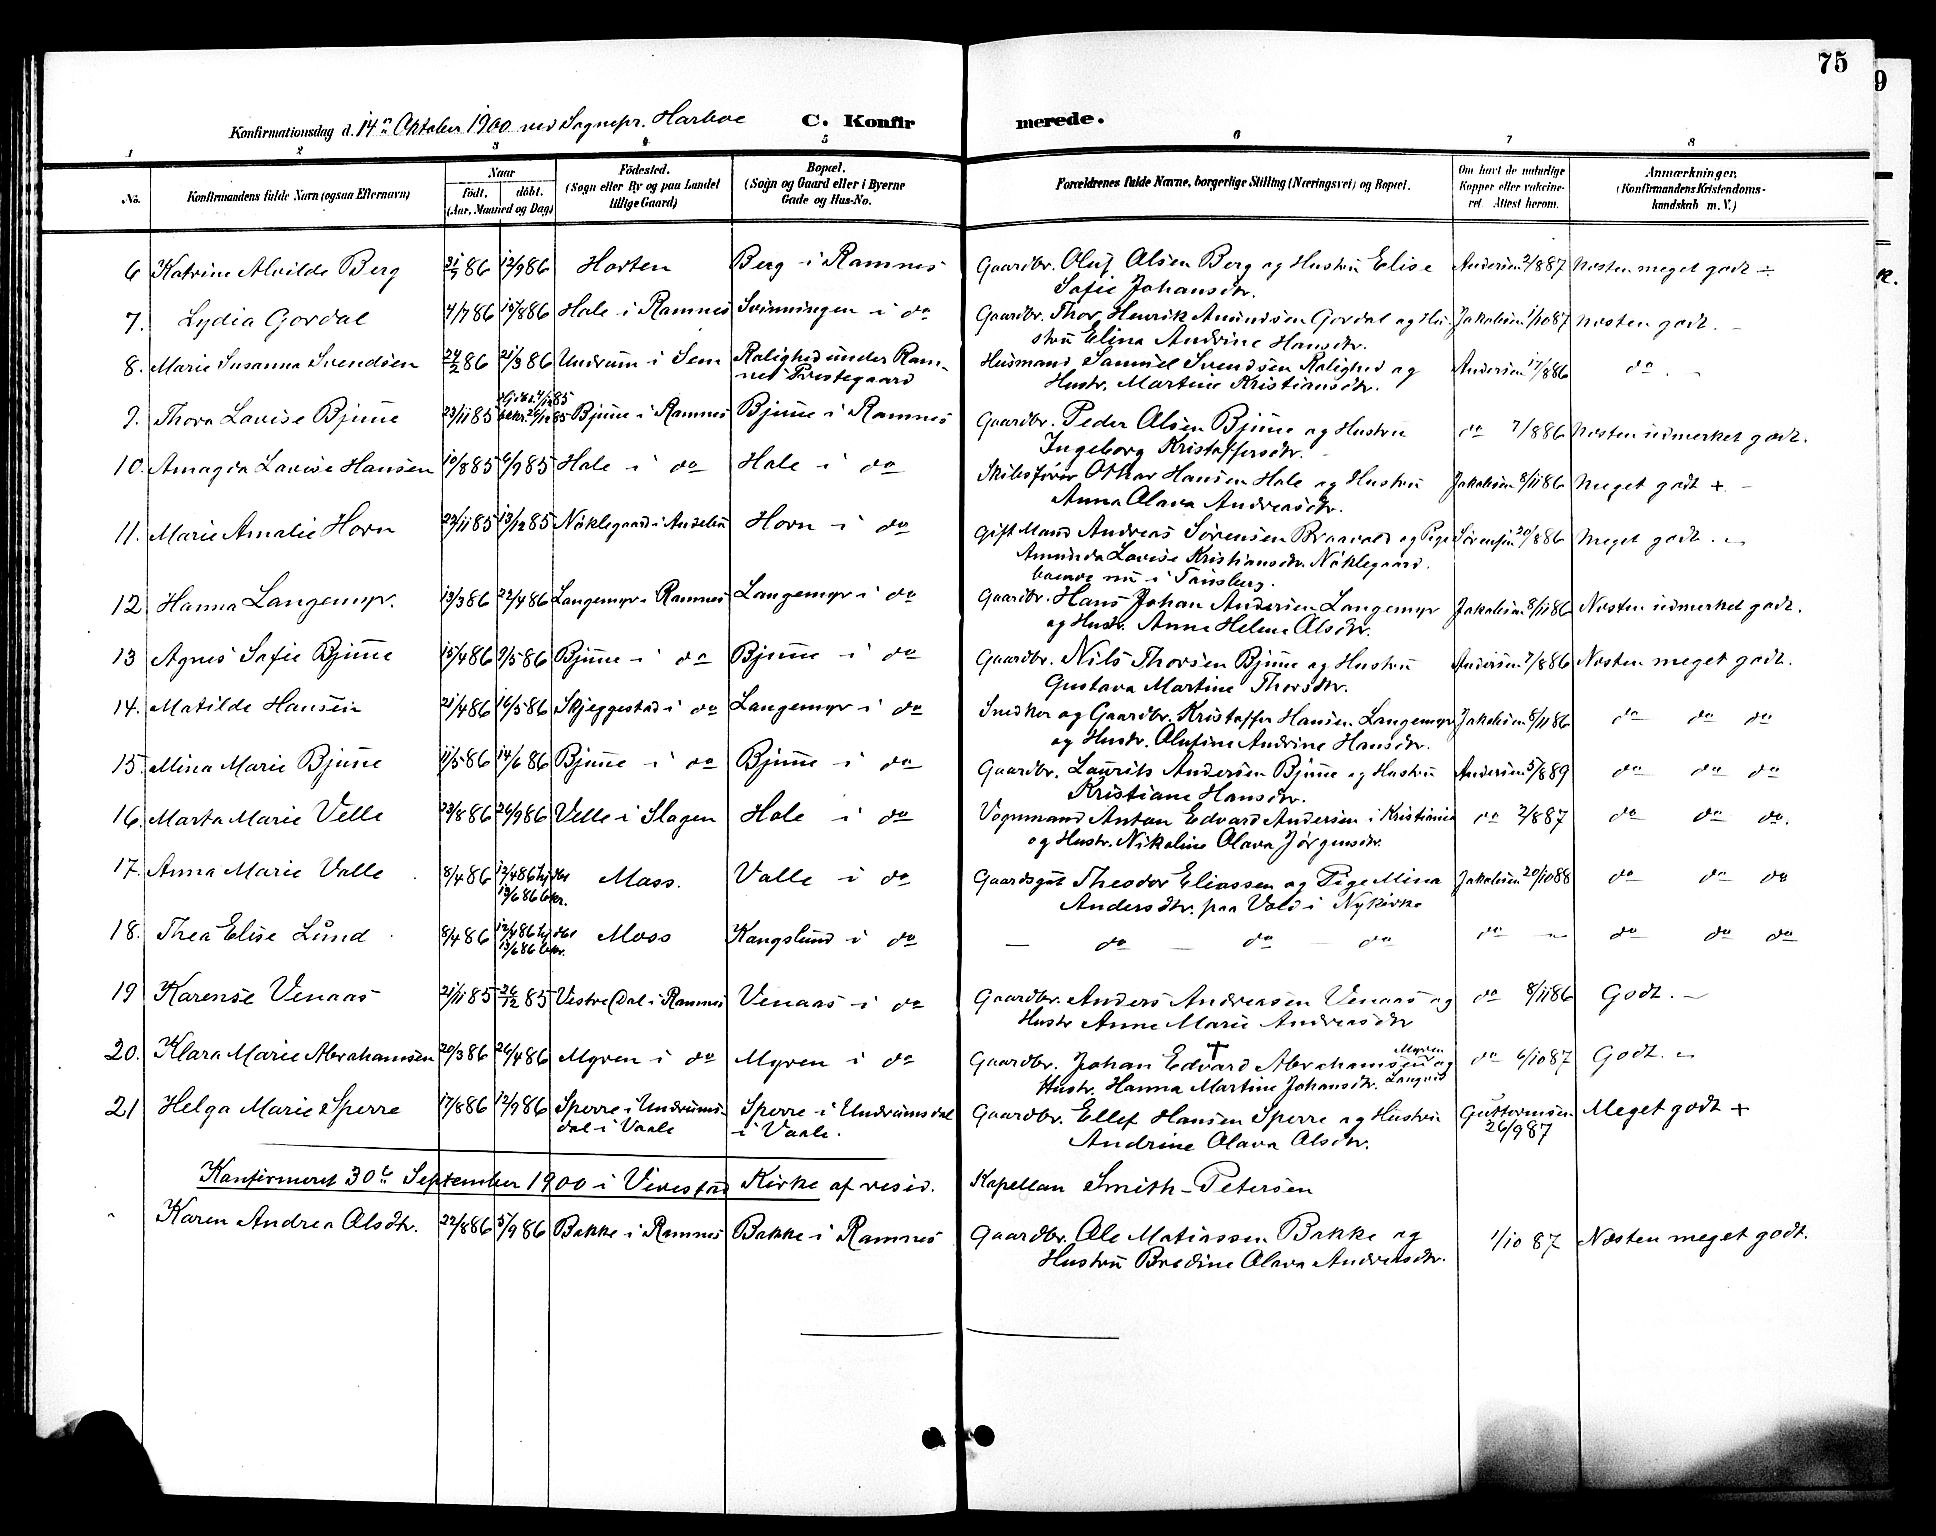 75
9
Konfirmationsdag d. 14de Oktober 1900 ved Sognepr. Harboe C. Konfirmerede.
1 2 3 4 5 6 7 8
No. Konfirmandens fulde Navn (ogsaa Efternavn) Naar født, døbt. (Aar, Maaned og Dag) Födested. (Sogn eller By og paa Landet tillige Gaard) Bopæl. (Sogn og Gaard eller i Byerne Gade og Hus-No. Forældrenes fulde Navne, borgerlige Stilling (Næringsvei) og Bopæl. Om havt de naturlige Kopper eller vaccineret. Attest herom. Anmærkninger. (Konfirmandens Kristendomskundskab m. V.)
6 Katrine Alvilde Berg 21/5 86 12/9 86 Horten Berg i Ramnes Gaardbr. Oluf Olsen Berg og Hustru Elise Andersen 2/8 87 Næsten meget godt ÷
Sofie Johansdtr.
7. Lydia Gordal 4/7 86 15/8 86 Hole i Ramnes Svinningen i do Gaardbr. Thor Henrik Amundsen Gordal og Hu- Jakobsen 1/10 87 Næsten godt. –
stru Elina Andrine Hansdtr.
8. Marie Susanna Svendsen 24/2 86 21/3 86 Undrum i Sem Rolighed under Ram- Husmand Samuel Svendsen Rolighed og Andersen 17/8 86 do. –
nes Prestegaard Hustr. Martine Kristiansdtr.
9. Thora Lovise Bjune 23/11 85 bekr. 26/12 85 Bjune i Ramnes Bjune i Ramnes Gaardbr. Peder Olsen Bjune og Hustru do 7/8 86 Næsten udmerket godt.
Ingeborg Kristoffersdtr.
10. Amagda Lovise Hansen 10/8 85 6/9 85 Hole i do Hole i do Skibsfører Othar Hansen Hole og Hustru Jakobsen 8/11 86 Meget godt + –
Anna Olava Andreasdtr.
11. Marie Amalie Horn 22/11 85 13/12 85 Nøklegaard i Andebu Horn i do Gift Mand Andreas Sørensen Braavold og Pige Sørensen 20/8 86 Meget godt. –
Amunda Lovise Kristiansdtr. Nøklegaard.
boende nu i Tønsberg.
12 Hanna Langemyr. 13/3 86 22/4 86 Langemyr i Ramnes Langemyr i do Gaardbr. Hans Johan Andersen Langemyr Jakobsen 8/11 86 Næsten udmerket godt.
og Hustr. Anne Helene Olsdtr.
13 Agnes Sofie Bjune 15/4 86 9/5 86 Bjune i do Bjune i do Gaardbr. Nils Thorsen Bjune og Hustru Andersen 7/8 86 Næsten meget godt.
Gustava Martine Thorsdtr.
14. Matilde Hansen 21/4 86 16/5 86 Skjeggestad i do Langemyr i do Snedker og Gaardbr. Kristoffer Hansen Langemyr Jakobsen 8/11 86 do do do
og Hustr. Olufine Andrine Hansdtr.
15. Mina Marie Bjune 11/5 86 14/6 86 Bjune i do Bjune i do Gaardbr. Laurits Andersen Bjune og Hustru Andersen 5/8 89 do do do
Kristiane Hansdtr.
16. Marta Marie Velle 23/8 86 26/9 86 Velle i Slagen Hole i do Vognmand Anton Edvard Andersen i Kristiania do 2/8 87 do do do.
og Hustr. Nikoline Olava Jørgensdtr.
17. Anna Marie Valle 8/4 86 12/4 86 hj. dbt Moss. Valle i do Gaardsgut Theodor Eliassen og Pige Mina Jakobsen 20/10 88 do do do
13/6 86 bekr. Andersdtr. paa Vold i Nykirke
18. Thea Elise Lund 8/4 86 12/4 86 hj. dbt Moss Kongslund i do – do – do – do do – do do do
13/6 86 bekr.
19 Karense Venaas 21/11 85 26/12 85 Vestre Dal i Ramnes Venaas i do Gaardbr. Anders Andreasen Venaas og do 8/11 86 Godt. –
Hustr Anne Marie Andreasdtr
20. Klara Marie Abrahamsen 20/3 86 26/4 86 Myren i do Myren i do Gaardbr. Johan Edvard † Abrahamsen Myren og do 6/10 87 Godt. –
Hustr. Hanna Martine Johansdtr.
21 Helga Marie Sperre 17/8 86 12/9 86 Sperre i Undrums- Sperre i Undrumsdal Gaardbr. Ellef Hansen Sperre og Hustru Guttormsen Meget godt +
dal i Vaale i Vaale. Andrine Olava Olsdtr. 26/9 87
Konfirmeret 30te September 1900 i Vivestad Kirke af resid. Kapellan Smith-Petersen
Karen Andrea Olsdtr. 22/8 86 5/9 86 Bakke i Ramnes Bakke i Ramnes Gaardbr. Ole Matiassen Bakke og 1/10 87 Næsten meget godt.
Hustru Bredine Olava Andreasdtr.